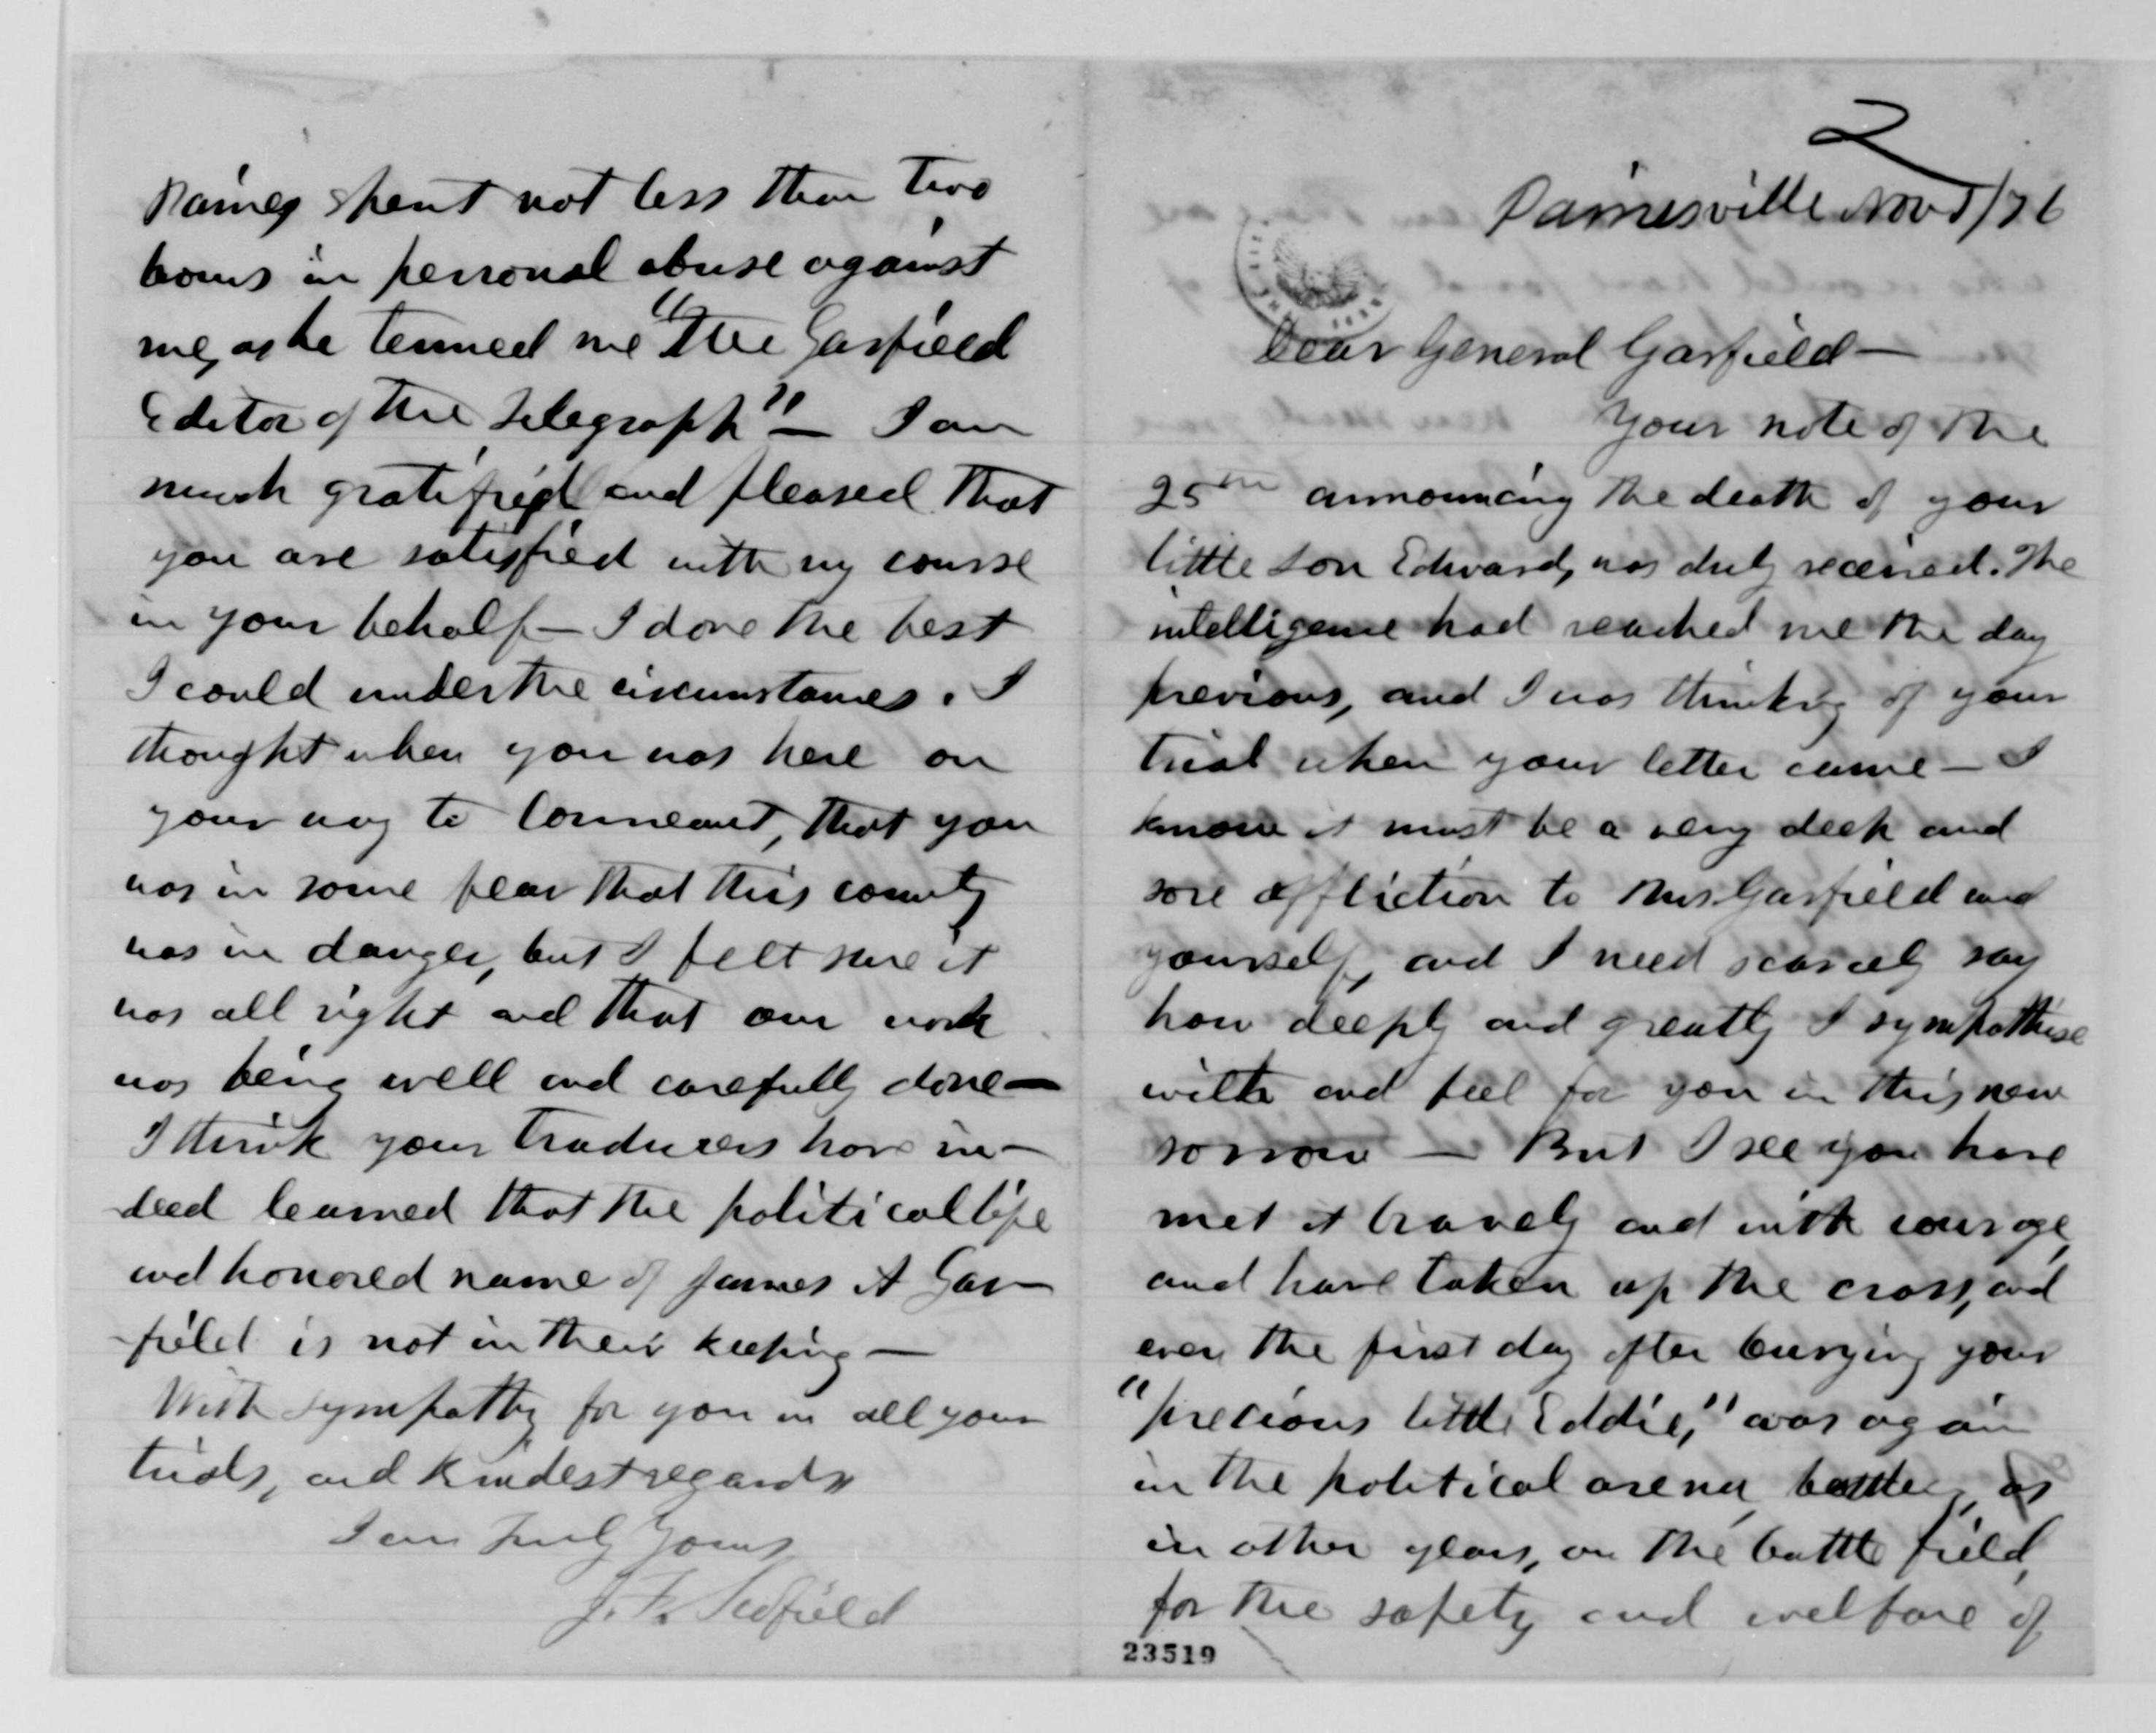 2
Painesville Nov 5/76
Dear General Garfield—
Your note of the
25th announcing the death of your
little son Edward, was duly received. The
intelligence had reached me the day
previous, and I was thinking of your
trial when your letter came— I
know it must be a very deep and
sore affliction to Mrs. Garfield and
yourself, and I need scarcely say
how deeply and greatly I sympathise
with and feel for you in this new
sorrow — But I see you have
met it bravely and with courage,
and have taken up the cross, and
even the first day after burying your
"precious little Eddie," was again
in the political arena, as
in other years, on the battle field,
for the safety and welfare of
23519
Raines spent not less than two
hours in personal abuse against
me, as he termed me "The Garfield
Editor of the Telegraph"— I am
much gratified and pleased that
you are satisfied with my course
in your behalf— I done the best
I could under the circumstances. I
thought when you was here on
your way to Conneaut, that you
was in some fear that this county
was in danger, but I felt sure it
was all right and that our work
was being well and carefully done—
I think your traducers have in-
deed learned that the political life
and honored name of James A Gar-
field is not in their keeping—
With sympathy for you in all your
trials, and kindest regards
I am Truly Yours
J. F. Scofield